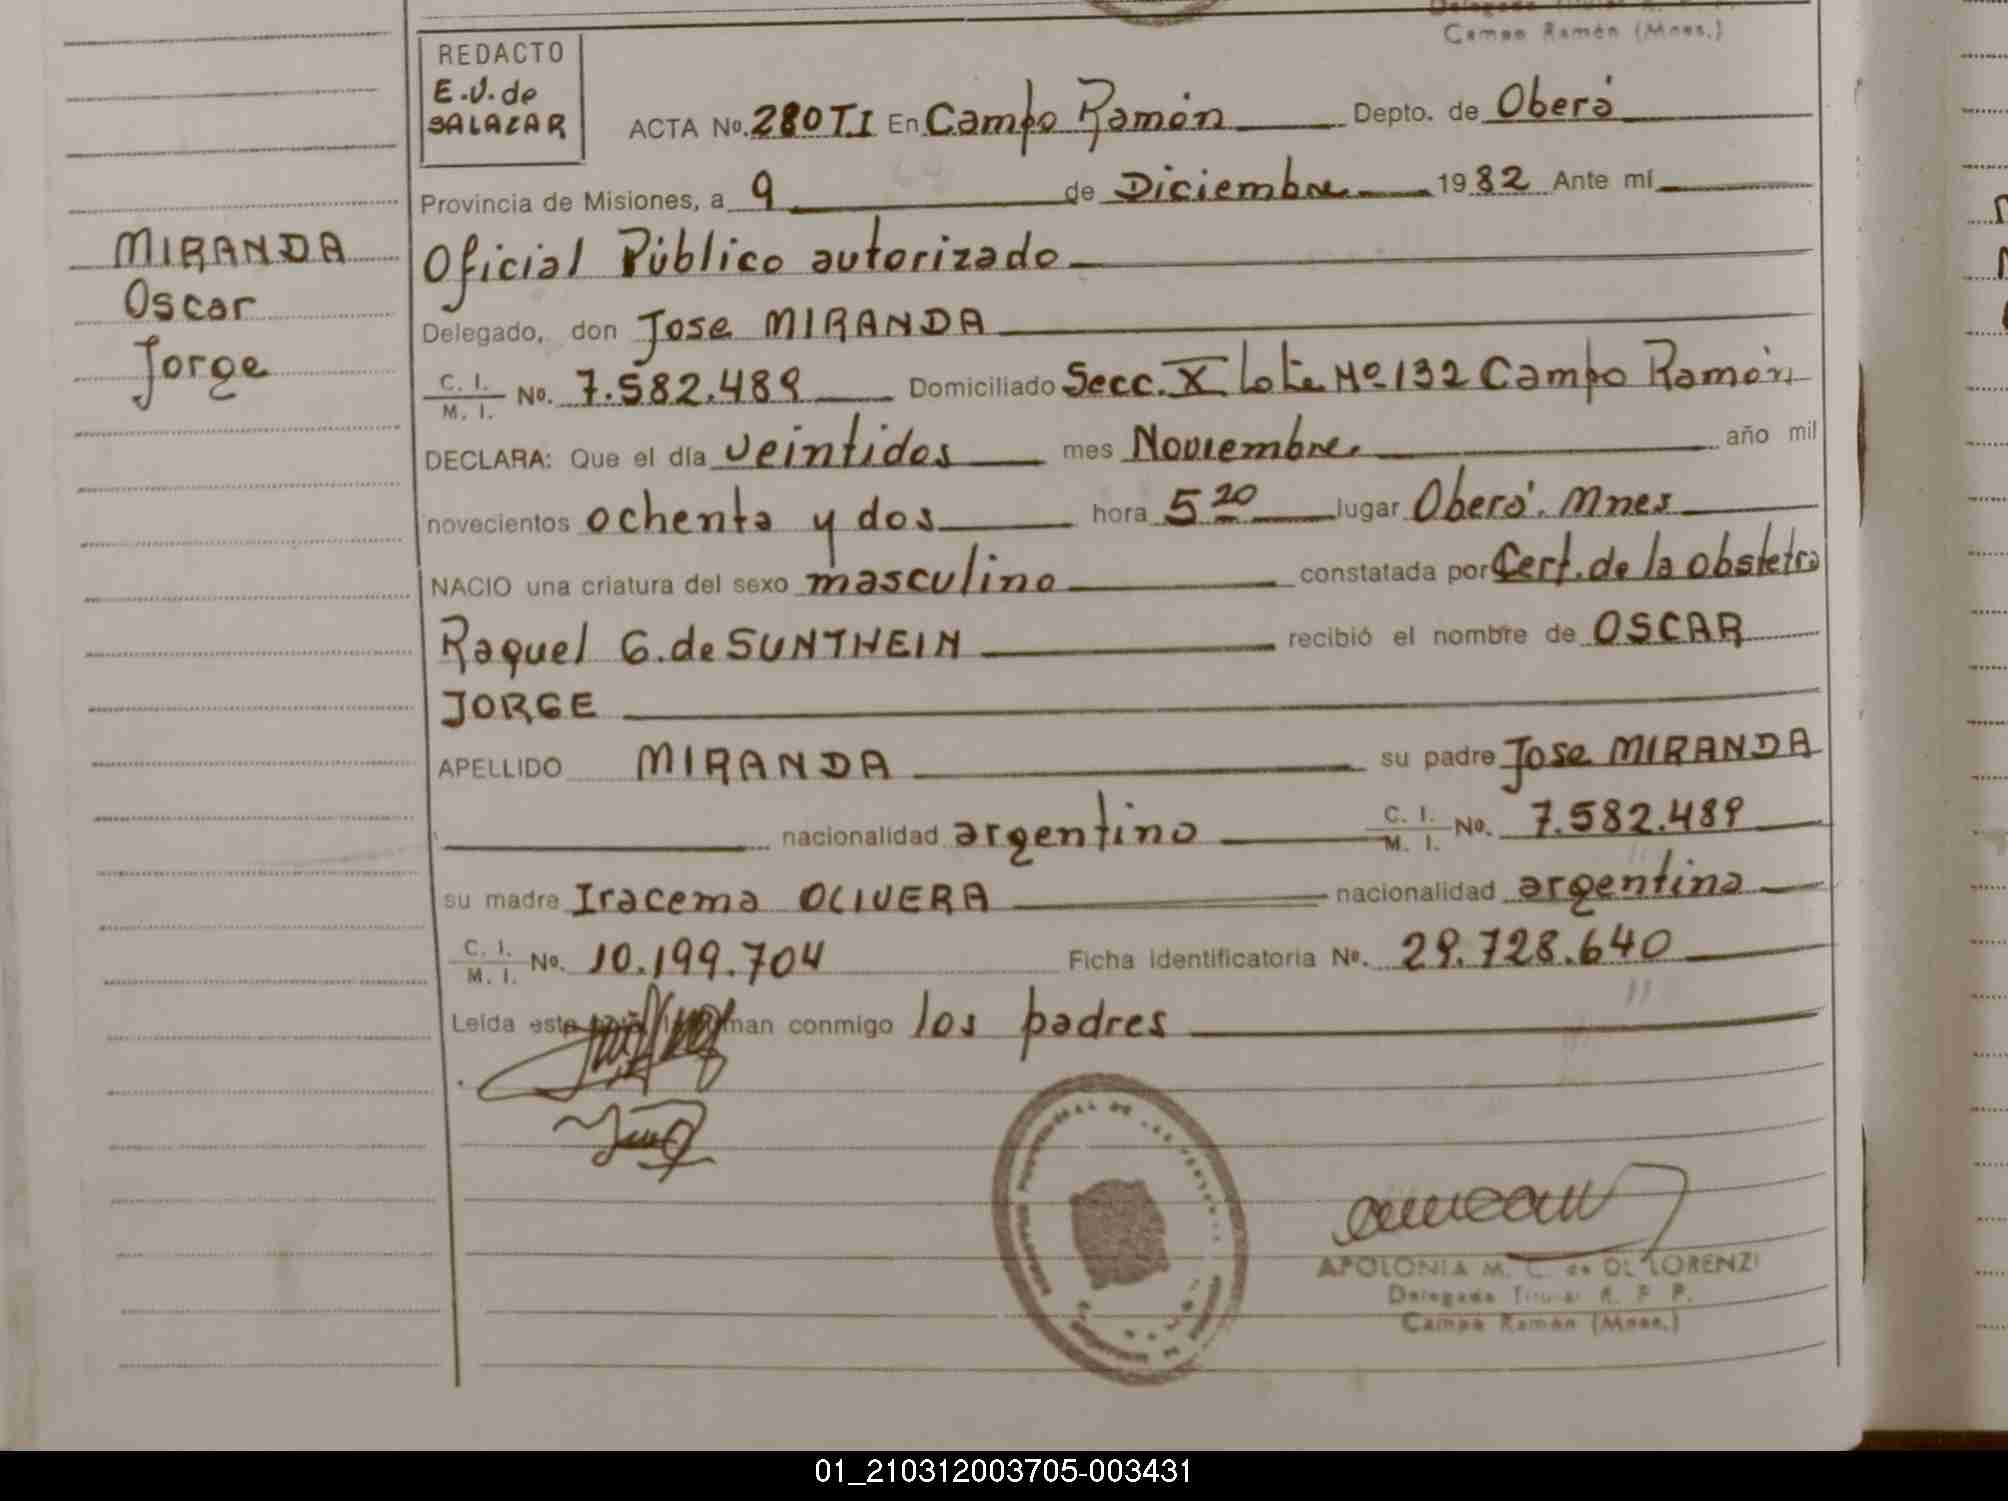 Campo Ramón (Mnes.)
REDACTO
E.V. de
SALAZAR
ACTA No. 280 TI En Campo Ramón Depto. de Oberá
Provincia de Misiones, a 9 de Diciembre 1982 Ante mí
MIRANDA
Oscar
Jorge
Oficial Público autorizado
Delegado, don Jose MIRANDA
C. I.
M. I. No. 7.582.489 Domiciliado Secc. X Lote Nº 132 Campo Ramón
DECLARA: Que el día veintidos mes Noviembre año mil
novecientos ochenta y dos hora 5 20 lugar Oberá. Mnes
NACIO una criatura del sexo masculino constatada por Cert. de la obstetra
Raquel G. de SUNTHEIN recibió el nombre de OSCAR
JORGE
APELLIDO MIRANDA su padre Jose MIRANDA
nacionalidad argentino C. I. M. I. No. 7.582.489
su madre Iracema OLIVERA nacionalidad argentina
C. I.
M. I. No. 10.199.704 Ficha identificatoria No. 29.728.640
Leída esta man conmigo los padres
APOLONIA M. C. de DI LORENZI
Delegada Titular R. P. P.
Campo Ramón (Mnes.)
01_210312003705-003431